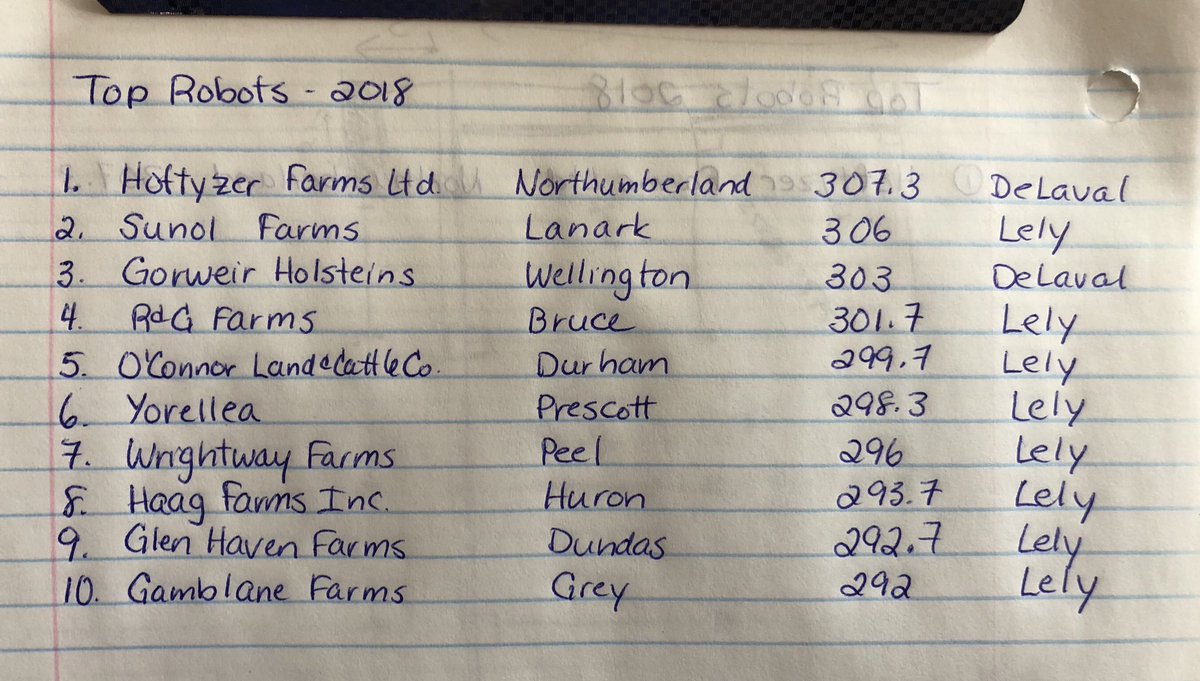 Top Robots - 2018
1. Hoftyzer Farms Ltd. Northumberland 307.3 DeLaval
2. Sunol Farms Lanark 306 Lely
3. Gorweir Holsteins Wellington 303 DeLaval
4. R&G Farms Bruce 301.7 Lely
5. O'Connor Land & Cattle Co. Durham 299.7 Lely
6. Yorellea Prescott 298.3 Lely
7. Wrightway Farms Peel 296 Lely
8. Haag Farms Inc. Huron 293.7 Lely
9. Glen Haven Farms Dundas 292.7 Lely
10. Gamblane Farms Grey 292 Lely